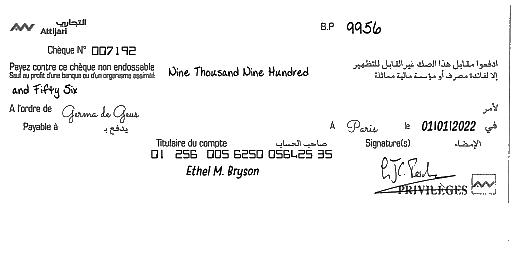 التجاري
Attijari
B.P 9956
Chèque N° 007192
Payez contre ce chèque non endossable
Sauf au profit d'une banque ou d'un organisme assimilé
Nine Thousand Nine Hundred
ادفعوا مقابل هذا الصك غير القابل للتظهير
إلا لفائدة مصرف أو مؤسسة مالية مماثلة
and Fifty Six
A l'ordre de Germa de Geus لأمر
Payable à يدفع بـ A Paris le 01/01/2022 في
Titulaire du compte صاحب الحساب Signature(s) الإمضاء
01 256 005 6250 056425 35
Ethel M. Bryson
PRIVILÈGES